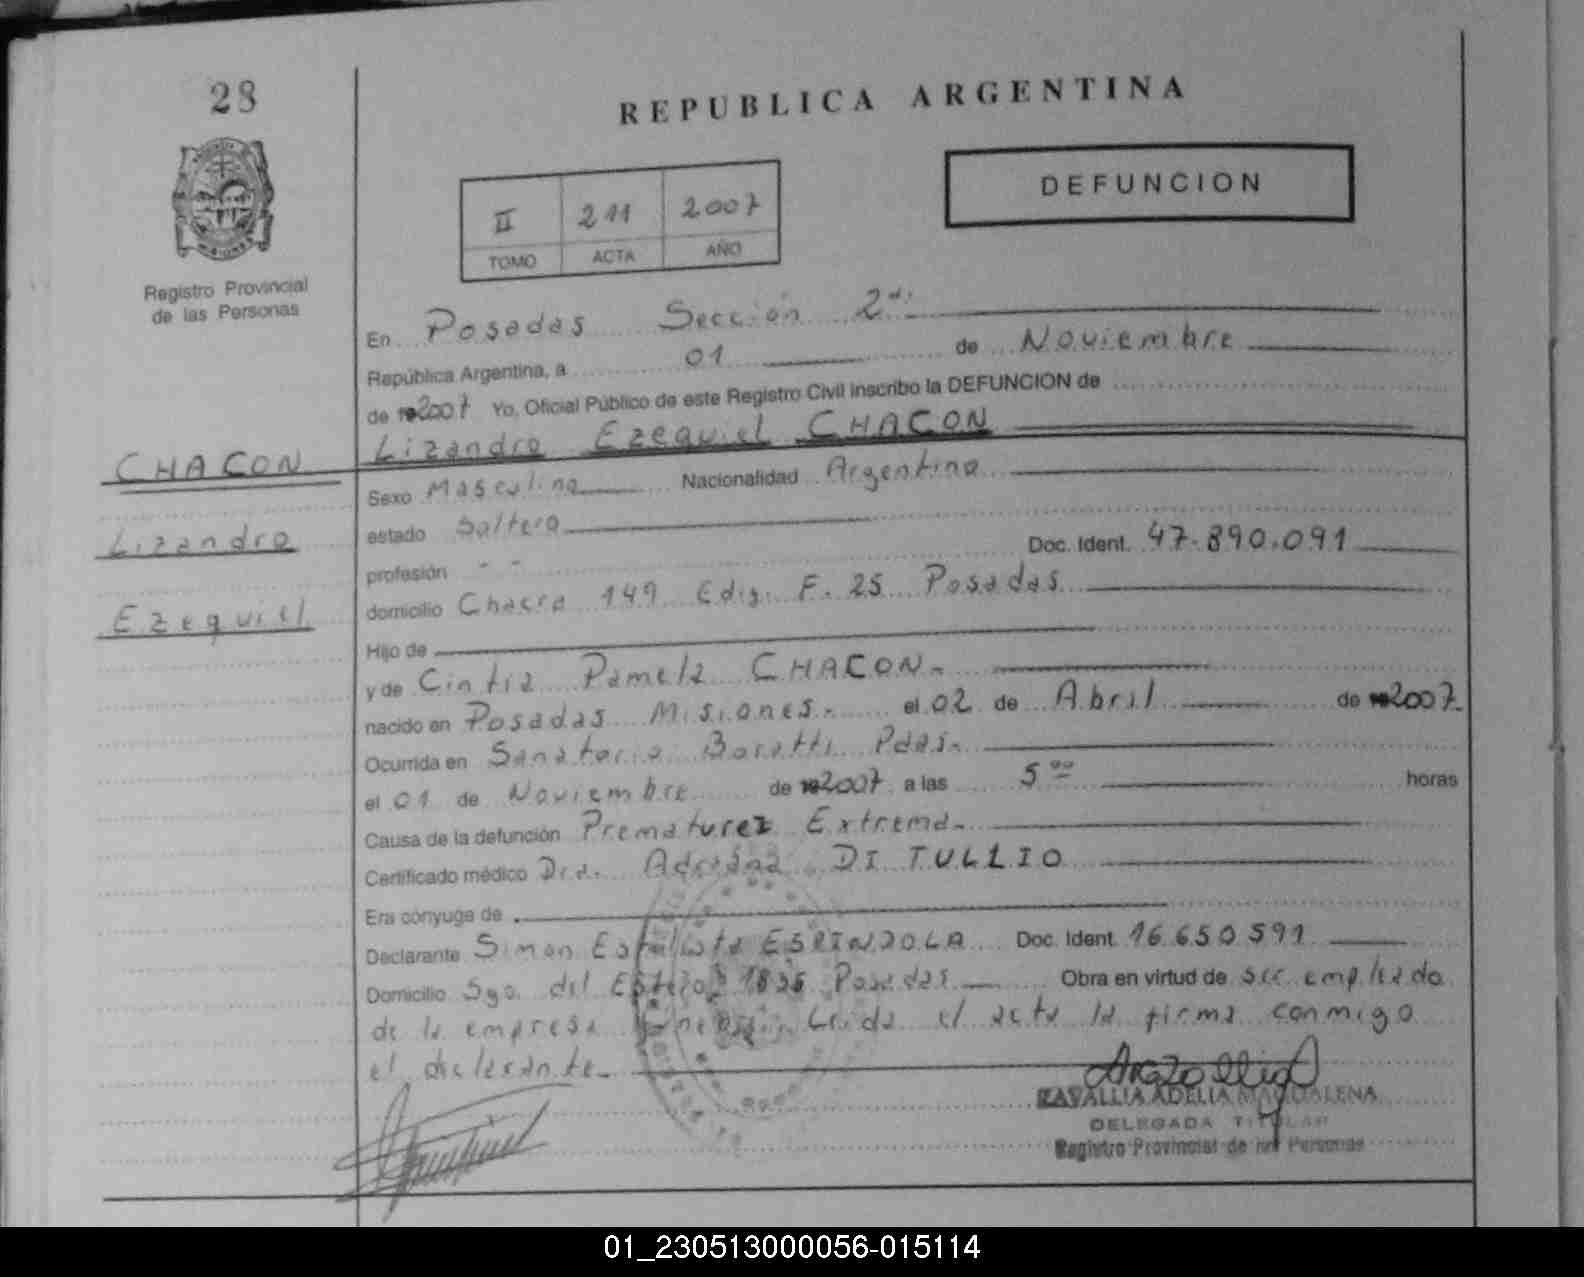 28
REPUBLICA ARGENTINA
DEFUNCION
II 211 2007
TOMO ACTA AÑO
Registro Provincial
de las Personas
En Posadas Sección 2da
República Argentina, a 01 de Noviembre
de 2007 Yo, Oficial Público de este Registro Civil inscribo la DEFUNCION de
Lizandro Ezequiel CHACON
CHACON
Lizandro
Ezequiel
Sexo Masculino Nacionalidad Argentina
estado Soltero
Doc. Ident. 47.890.091
profesión - -
domicilio Chacra 149 Edif. F. 25 Posadas
Hijo de
y de Cintia Pamela CHACON.
nacido en Posadas Misiones. el 02 de Abril de 2007
Ocurrida en Sanatorio Boratti Pdas.
el 01 de Noviembre de 2007 a las 5 00 horas
Causa de la defunción Prematurez Extrema.
Certificado médico Dra. Adriana DI TULLIO
Era cónyuge de
Declarante Simon ESPINDOLA Doc. Ident. 16.650.591
Domicilio Sgo. del Estero 1836 Posadas Obra en virtud de ser empleado
de la empresa Leida el acta la firma conmigo
el declarante.
ZAVALLIA ADELIA MAGDALENA
DELEGADA TITULAR
Registro Provincial de las Personas
01_230513000056-015114